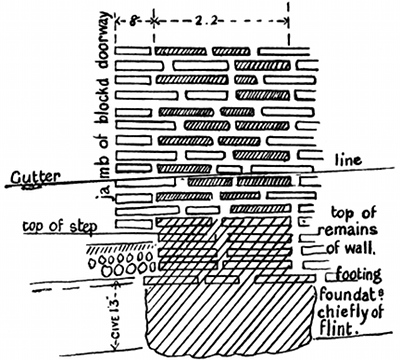 8"
2.2
jamb of blockd doorway
line
Gutter
top of step
top of
remains
of wall.
footing
foundatⁿ
chiefly of
flint.
GIVE 13"